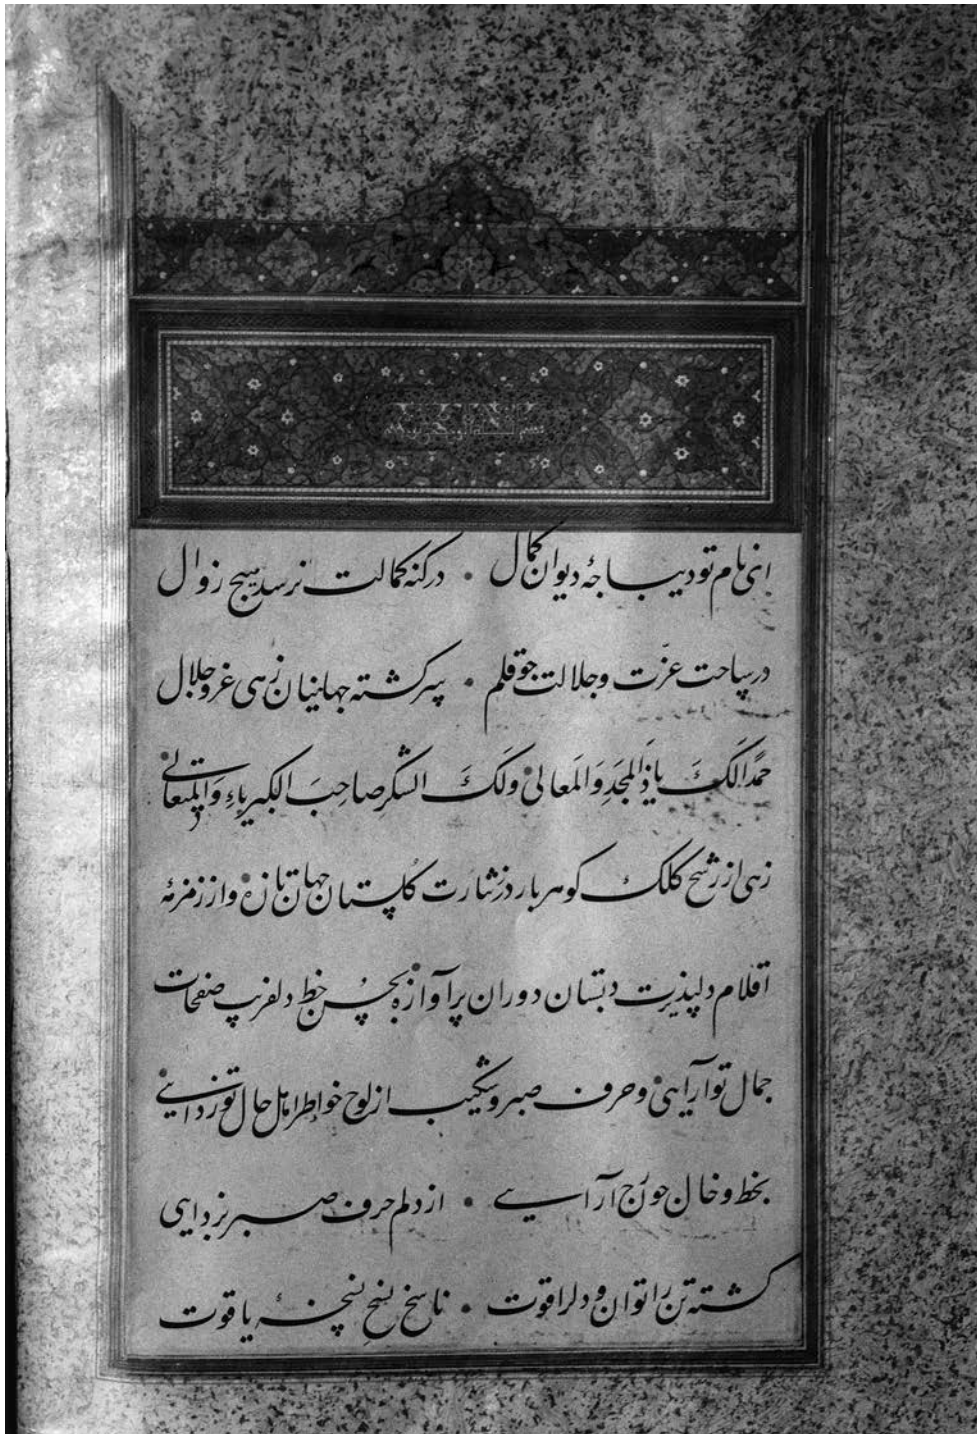 ای نام تو دیباجهٔ دیوان کمال • در کنه کمالت نرسد هیچ زوال
در ساحت عزت و جلالت چو قلم • سرکشته جهانیان زهی عز و جلال
حمدًا لَکَ یا ذَالمجَدِ وَالمَعالی ولَکَ الشکر صاحِبَ الکبریاءِ وَالمتعالی
زهی از رشح کلک کوهر بار در نثارت کلستان جهان تازه و از زمزمهٔ
اقلام دلپذیرت دبستان دوران پر آوازه بحسن خط دلفریب صفحات
جمال تو آرایی و حرف صبر و شکیب از لوح خواطر اهل حال تو زدایی
بخط و خال چو رخ آرایی • از دلم حرف صبر بزدایی
کشته تن را توان و دلرا قوت • ناسخ نسخ نسخهٔ یاقوت